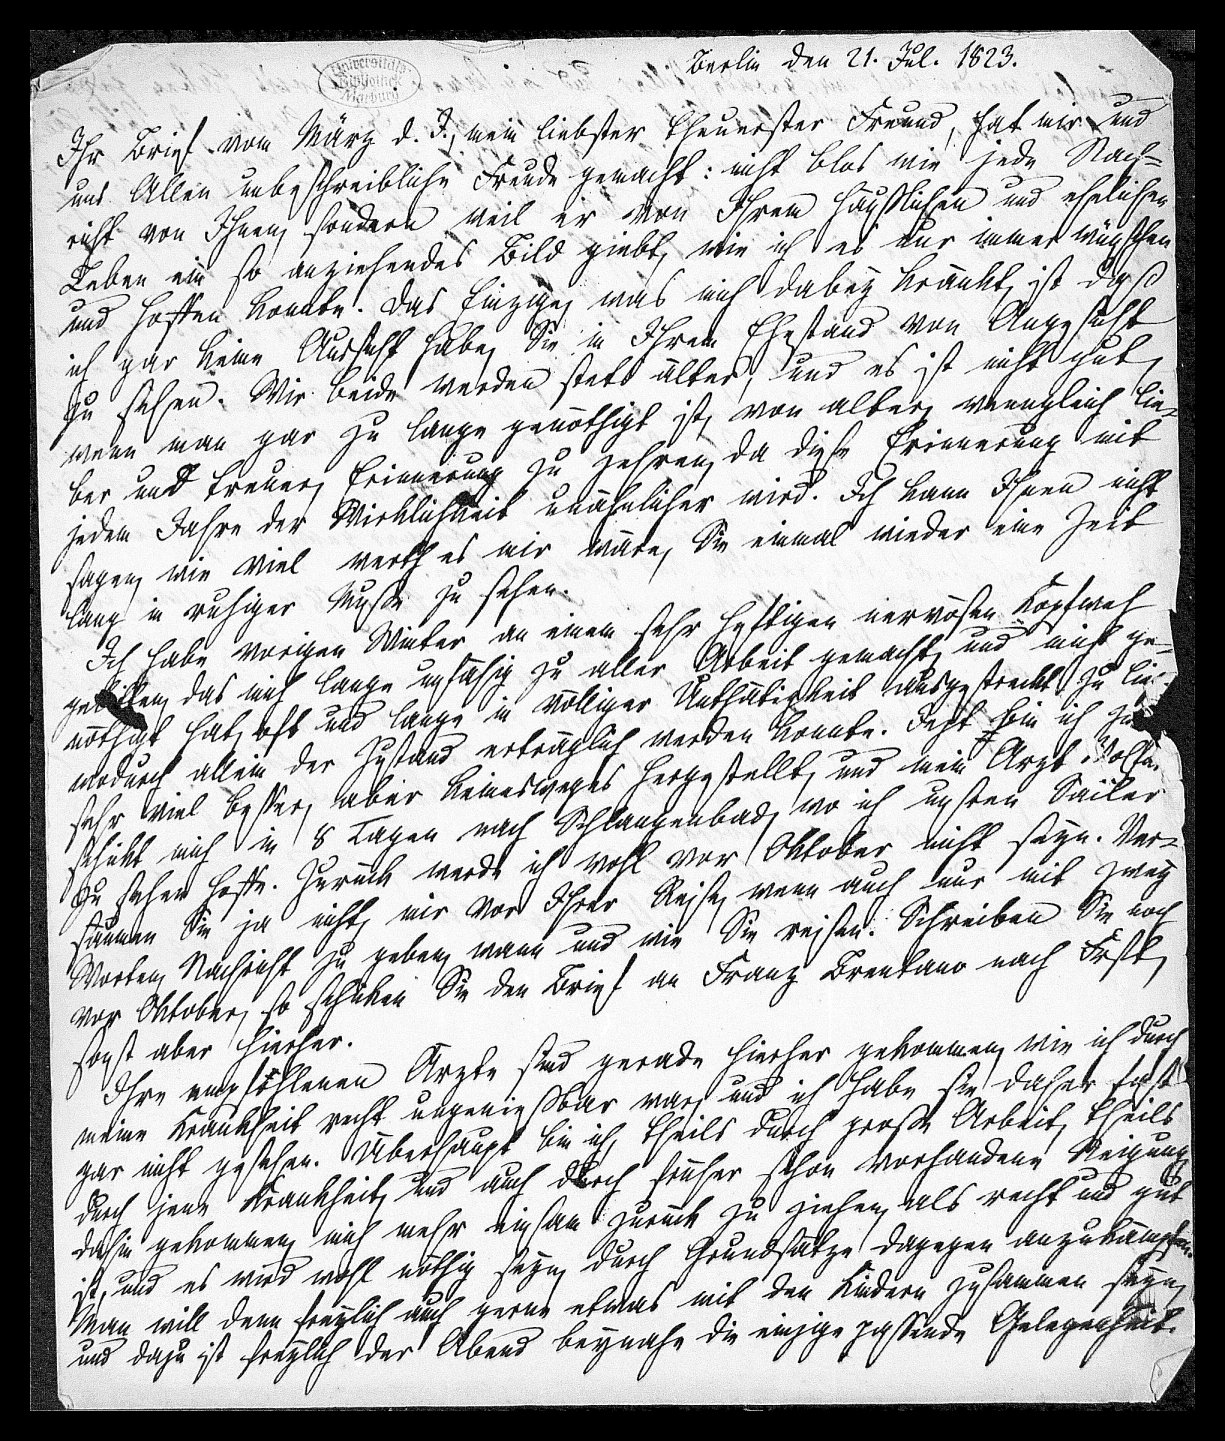 Berlin den 21. Jul. 1823.
Universitäts-
Bibliothek
Marburg
Ihr Brief vom März d. J., mein liebster theuerster Freund, hat mir und
uns Allen unbeschreibliche Freude gemacht: nicht blos wie jede Nach=
richt von Ihnen, sondern weil er von Ihrem häuslichen und ehelichen
Leben ein so anziehendes Bild giebt, wie ich es nur immer wünschen
und hoffen konnte. Das Einzige, was mich dabey kränkt, ist daß
ich gar keine Aussicht habe, Sie in Ihrem Ehestand von Angesicht
zu sehen. Wir beide werden stets älter, und es ist nicht gut,
wenn man gar zu lange genöthigt ist, von alter, wenngleich lie=
ber und treuer, Erinnerung zu zehren, da diese Erinnerung mit
jedem Jahre der Wirklichkeit unähnlicher wird. Ich kann Ihnen nicht
sagen, wie viel werth es mir wäre, Sie einmal wieder eine Zeit
lang in ruhiger Muße zu sehen.
Ich habe vorigen Winter an einem sehr heftigen nervösen Kopfweh
gelitten, das mich lange unfähig zu aller Arbeit gemacht, und mich ge=
nöthigt hat, oft und lange in völliger Unthätigkeit ausgestreckt zu
wodurch allein der Zustand erträglich werden konnte. Jetzt bin ich
sehr viel besser, aber keineswegs hergestellt, und mein Arzt
schickt mich in 8 Tagen nach Schlangenbad, wo ich unsren Sailer
zu sehen hoffe. Zurück werde ich wohl vor Oktober nicht seyn. Ver=
säumen Sie ja nicht, mir vor Ihrer Reise, wenn auch nur mit zwey
Worten, Nachricht zu geben, wann und wie Sie reisen. Schreiben Sie noch
vor Oktober, so schicken Sie den Brief an Franz Brentano nach Frft,
sonst aber hierher.
Ihre empfohlenen Ärzte sind gerade hierher gekommen, wie ich durch
meine Krankheit recht ungenießbar war, und ich habe sie daher fast
gar nicht gesehen. Überhaupt bin ich, theils durch große Arbeit, theils
durch jene Krankheit, und auch durch früher schon vorhandene Neigung
dahin gekommen, mich mehr einsam zurück zu ziehen, als recht und gut
ist, und es wird wohl nöthig seyn, durch Grundsätze dagegen anzukämpfen.
Man will denn freylich auch gerne etwas mit den Kindern zusammen seyn,
und dazu ist freylich der Abend beynahe die einzige passende Gelegenheit.